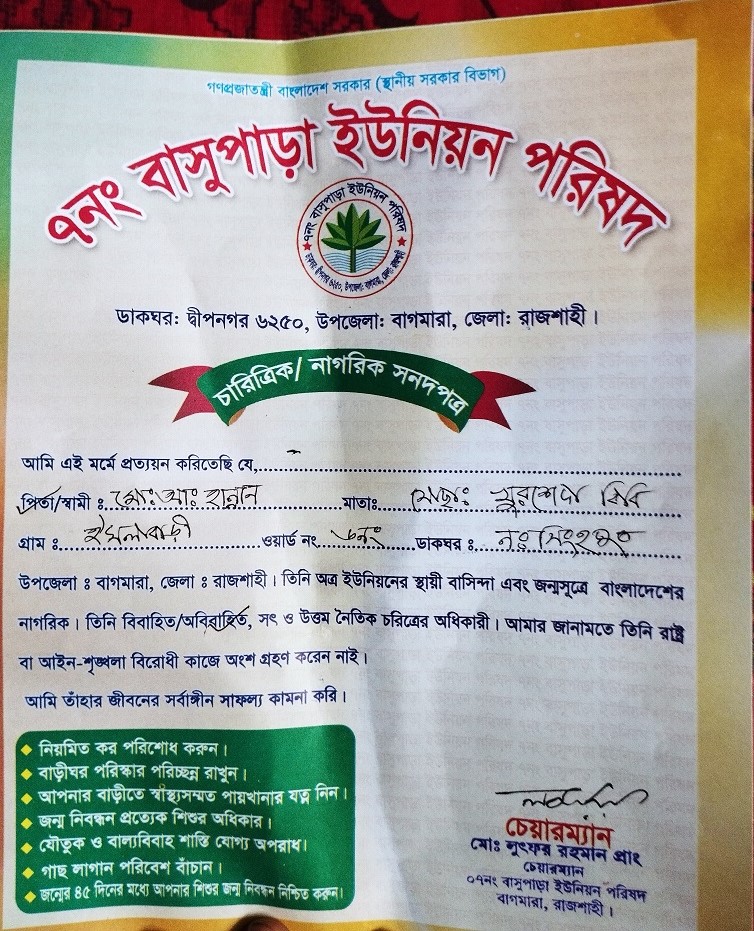 গণপ্রজাতন্ত্রী বাংলাদেশ সরকার (স্থানীয় সরকার বিভাগ)
৭নং বাসুপাড়া ইউনিয়ন পরিষদ
৭নং বাসুপাড়া ইউনিয়ন পরিষদ
ডাকঘর: দ্বীপনগর ৬২৫০, উপজেলা: বাগমারা, জেলা: রাজশাহী
ডাকঘর: দ্বীপনগর ৬২৫০, উপজেলা: বাগমারা, জেলা: রাজশাহী।
চারিত্রিক/ নাগরিক সনদপত্র
আমি এই মর্মে প্রত্যয়ন করিতেছি যে,
পিতা/স্বামী : মো: আ: হান্নান মাতা: মোছা: খুরশেদা বিবি
গ্রাম : ওয়ার্ড নং ৬নং ডাকঘর :
উপজেলা : বাগমারা, জেলা : রাজশাহী। তিনি অত্র ইউনিয়নের স্থায়ী বাসিন্দা এবং জন্মসূত্রে বাংলাদেশের
নাগরিক। তিনি বিবাহিত/অবিবাহিত, সৎ ও উত্তম নৈতিক চরিত্রের অধিকারী। আমার জানামতে তিনি রাষ্ট্র
বা আইন-শৃঙ্খলা বিরোধী কাজে অংশ গ্রহণ করেন নাই।
আমি তাঁহার জীবনের সর্বাঙ্গীন সাফল্য কামনা করি।
নিয়মিত কর পরিশোধ করুন।
বাড়ীঘর পরিস্কার পরিচ্ছন্ন রাখুন।
আপনার বাড়ীতে স্বাস্থ্যসম্মত পায়খানার যত্ন নিন।
জন্ম নিবন্ধন প্রত্যেক শিশুর অধিকার।
যৌতুক ও বাল্যবিবাহ শাস্তি যোগ্য অপরাধ।
গাছ লাগান পরিবেশ বাঁচান।
জন্মের ৪৫ দিনের মধ্যে আপনার শিশুর জন্ম নিবন্ধন নিশ্চিত করুন।
চেয়ারম্যান
মোঃ লুৎফর রহমান প্রাং
চেয়ারম্যান
০৭নং বাসুপাড়া ইউনিয়ন পরিষদ
বাগমারা, রাজশাহী।